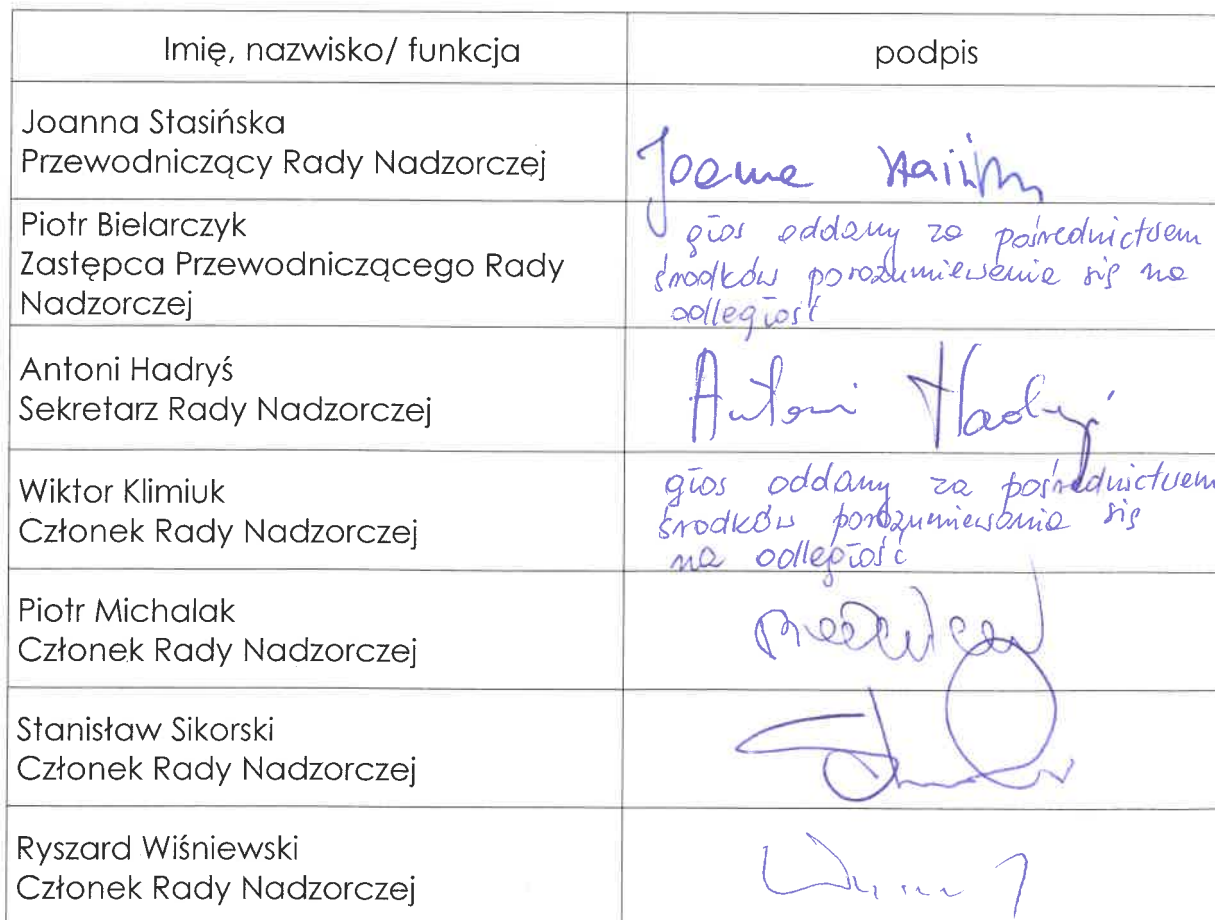 Imię, nazwisko/ funkcja
podpis
Joanna Stasińska
Przewodniczący Rady Nadzorczej
Joanna
Piotr Bielarczyk
Zastępca Przewodniczącego Rady
Nadzorczej
głos oddany za pośrednictwem
środków porozumiewania się na
odległość
Antoni Hadryś
Sekretarz Rady Nadzorczej
Antoni Hadryś
Wiktor Klimiuk
Członek Rady Nadzorczej
głos oddany za pośrednictwem
środków porozumiewania się
na odległość
Piotr Michalak
Członek Rady Nadzorczej
Stanisław Sikorski
Członek Rady Nadzorczej
Ryszard Wiśniewski
Członek Rady Nadzorczej